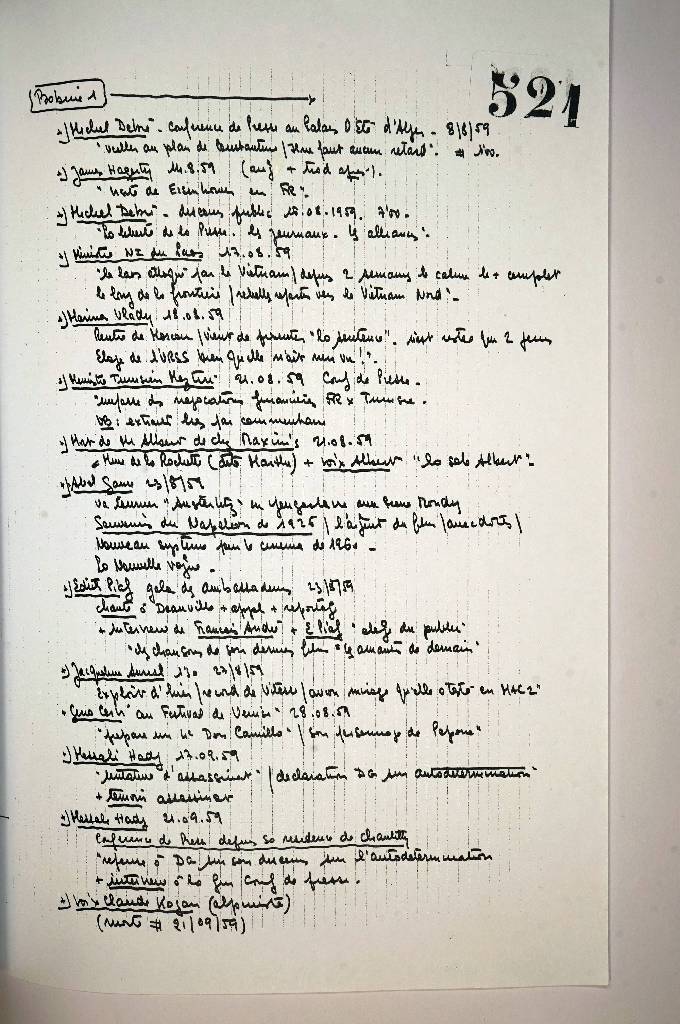 521
Bobine 1
+) Michel Debré - conférence de Presse au Palais D'Eté d'Alger - 8/8/59
"veiller au plan de Constantine / il ne faut aucun retard". # 1'00.
+) James Hagerty 14.8.59 (angl + trad après).
"visite de Eisenhower en FR".
+) Michel Debré - discours public 16.08.1959. 7'00.
"la liberté de la Presse. les journaux. les alliances".
+) Ministre du Laos 17.08.59
"le Laos attaqué par le Vietnam / depuis 2 semaines le calme le + complet
le long de la frontière / rebelles repartis vers le Vietnam Nord".
+) Marina Vlady 18.08.59
Rentre de Moscou / vient de présenter "la sentence". n'est restée que 2 jours
Eloge de l'URSS bien qu'elle n'ait rien vu !".
+) Ministre Tunisien 21.08.59 Conf de Presse.
"impasse des négociations financières FR x Tunisie.
NB: extrait lu par commentaire
+) Mort de Mr Albert de chez Maxim's 21.08.59
Mme de la Rochette (dite Marthe) + voix Albert "la sole Albert".
+) Abel Gance 23/8/59
va tourner "Austerlitz" en Yougoslavie
Souvenirs du Napoléon de 1925 / l'argent du film / anecdotes /
Nouveau système pour le cinéma de 1960 -
La Nouvelle Vague -
+) Edith Piaf gala des ambassadeurs 23/8/59
chante à Deauville + appl + reportage
+ interview de François André + E Piaf "éloge du public"
"les chansons de son dernier film "les amants de demain"
+) Jacqueline Auriol 27/8/59
Exploit d'hier / record de vitesse / avion mirage qu'elle a testé en MAC 2"
+ Gino Cervi au Festival de Venise 28.08.59
"prépare un 4e Don Camillo" / son personnage de Pepone"
+) Messali Hadj 17.09.59
"tentative d'assassinat" / déclaration DG sur autodétermination
+ témoin assassinat
+) Messali Hadj 21.09.59
Conférence de Presse depuis sa résidence de Chantilly
"réponse à DG sur son discours sur l'autodétermination
+ interview à la fin Conf de presse.
+) voix Claude Kogan (alpiniste)
(morte # 21/09/59)